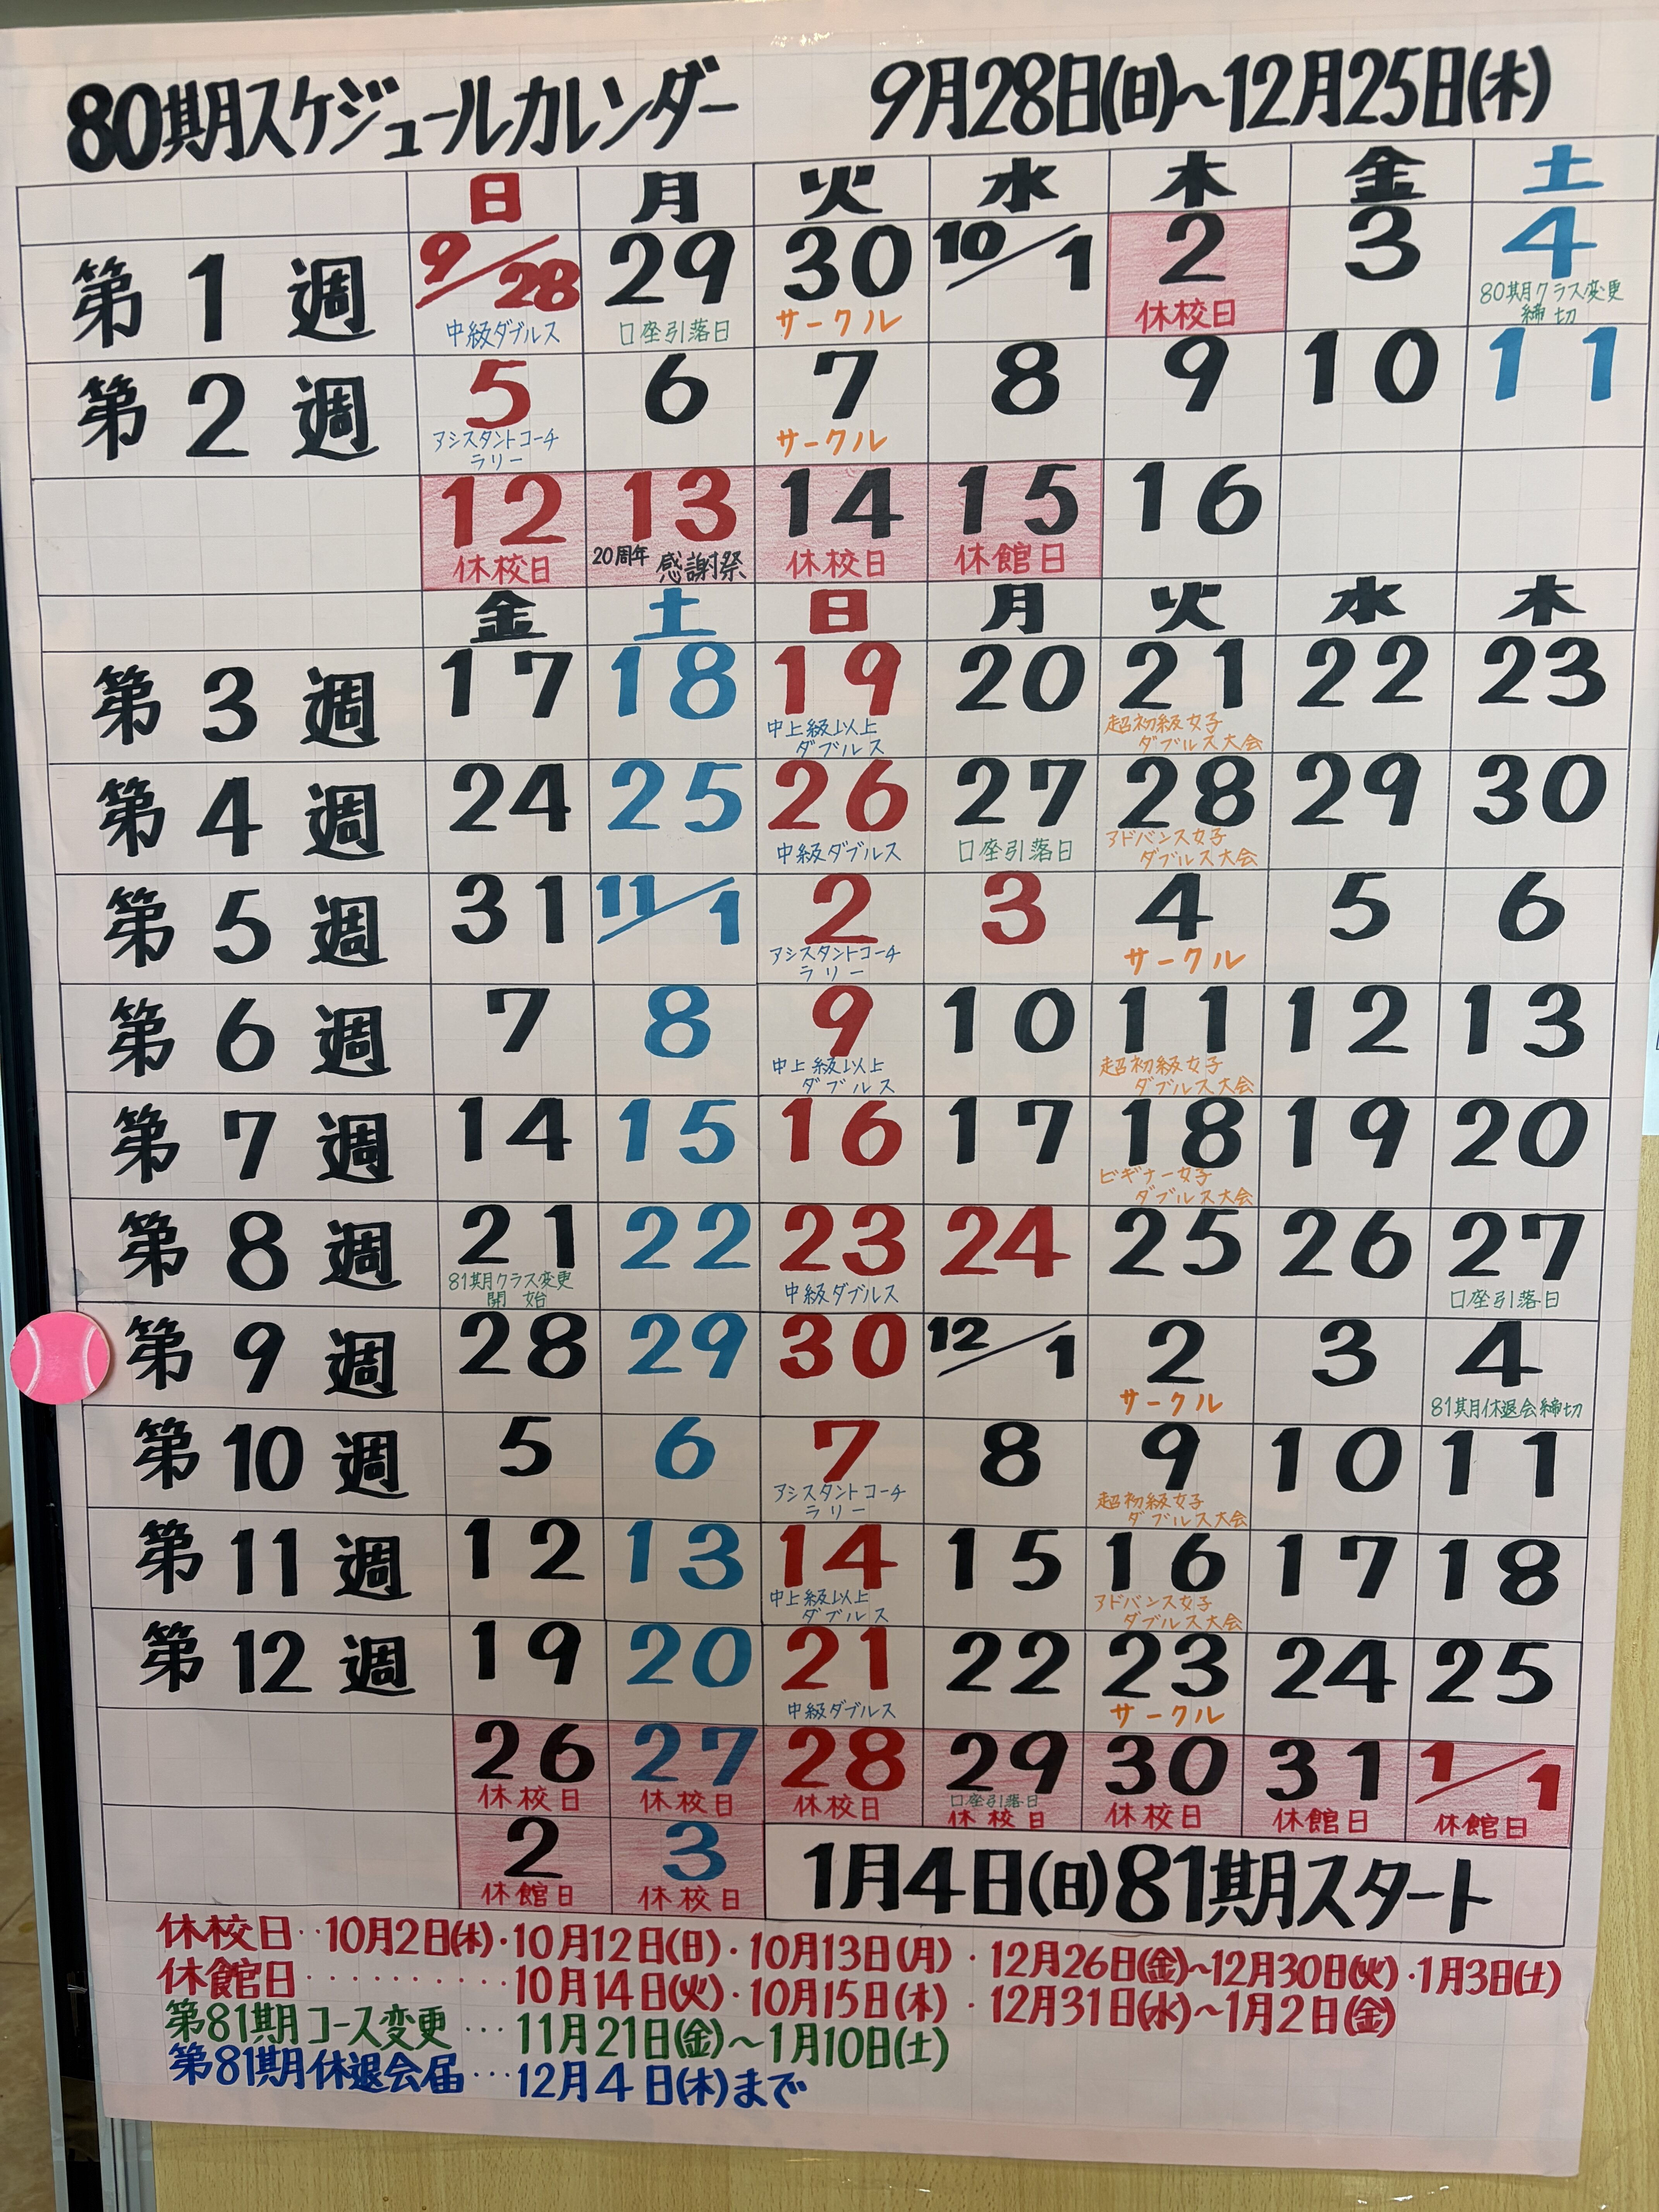 80期スケジュールカレンダー 9月28日(日)～12月25日(木)
日 月 火 水 木 金 土
第1週 9/28 29 30 10/1 2 3 4
中級ダブルス 口座引落日 サークル 休校日 80期クラス変更
締切
第2週 5 6 7 8 9 10 11
アシスタントコーチ サークル
ラリー
12 13 14 15 16
休校日 20周年 感謝祭 休校日 休館日
金 土 日 月 火 水 木
第3週 17 18 19 20 21 22 23
中上級以上 超初級女子
ダブルス ダブルス大会
第4週 24 25 26 27 28 29 30
中級ダブルス 口座引落日 アドバンス女子
ダブルス大会
第5週 31 11/1 2 3 4 5 6
アシスタントコーチ サークル
ラリー
第6週 7 8 9 10 11 12 13
中上級以上 超初級女子
ダブルス ダブルス大会
第7週 14 15 16 17 18 19 20
ビギナー女子
ダブルス大会
第8週 21 22 23 24 25 26 27
81期クラス変更 中級ダブルス 口座引落日
開始
第9週 28 29 30 12/1 2 3 4
サークル 81期休退会締切
第10週 5 6 7 8 9 10 11
アシスタントコーチ 超初級女子
ラリー ダブルス大会
第11週 12 13 14 15 16 17 18
中上級以上 アドバンス女子
ダブルス ダブルス大会
第12週 19 20 21 22 23 24 25
中級ダブルス サークル
26 27 28 29 30 31 1/1
口座引落日
休校日 休校日 休校日 休校日 休校日 休館日 休館日
2 3 1月4日(日)81期スタート
休館日 休校日
休校日‥10月2日(木)・10月12日(日)・10月13日(月)・12月26日(金)～12月30日(火)・1月3日(土)
休館日‥‥‥‥‥10月14日(火)・10月15日(木)・12月31日(水)～1月2日(金)
第81期コース変更…11月21日(金)～1月10日(土)
第81期休退会届…12月4日(木)まで